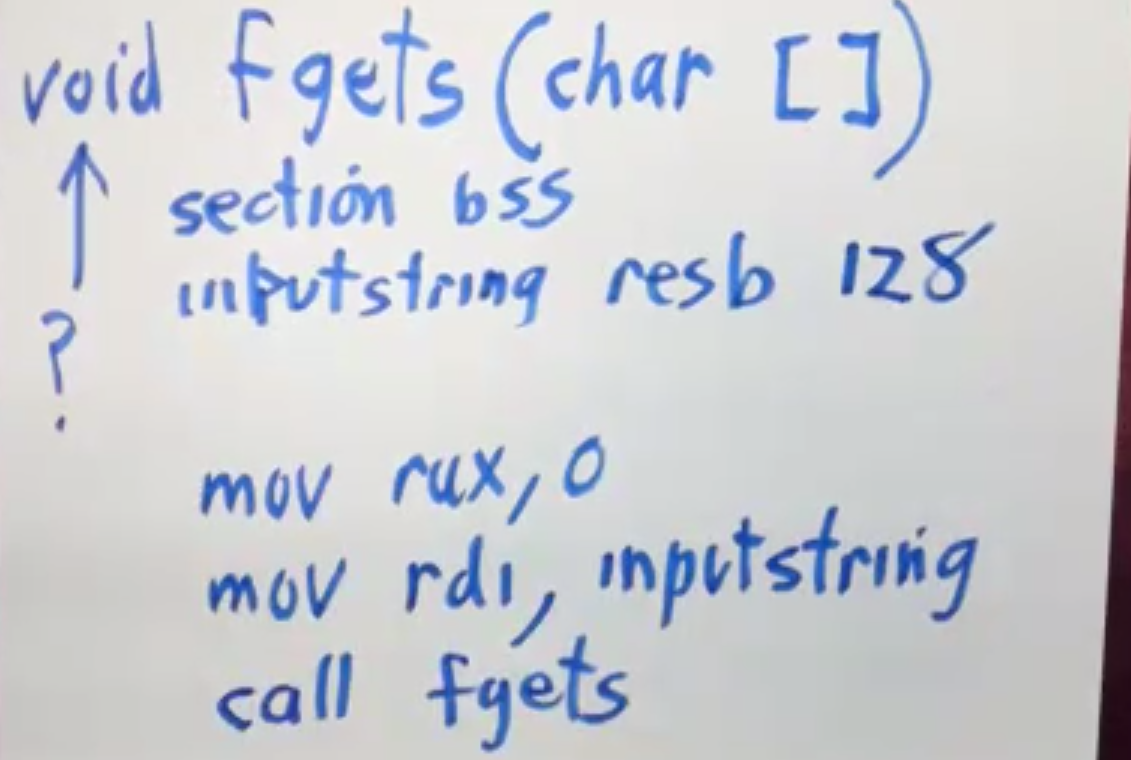 void fgets (char [])
section bss
inputstring resb 128
?
mov rax, 0
mov rdi, inputstring
call fgets